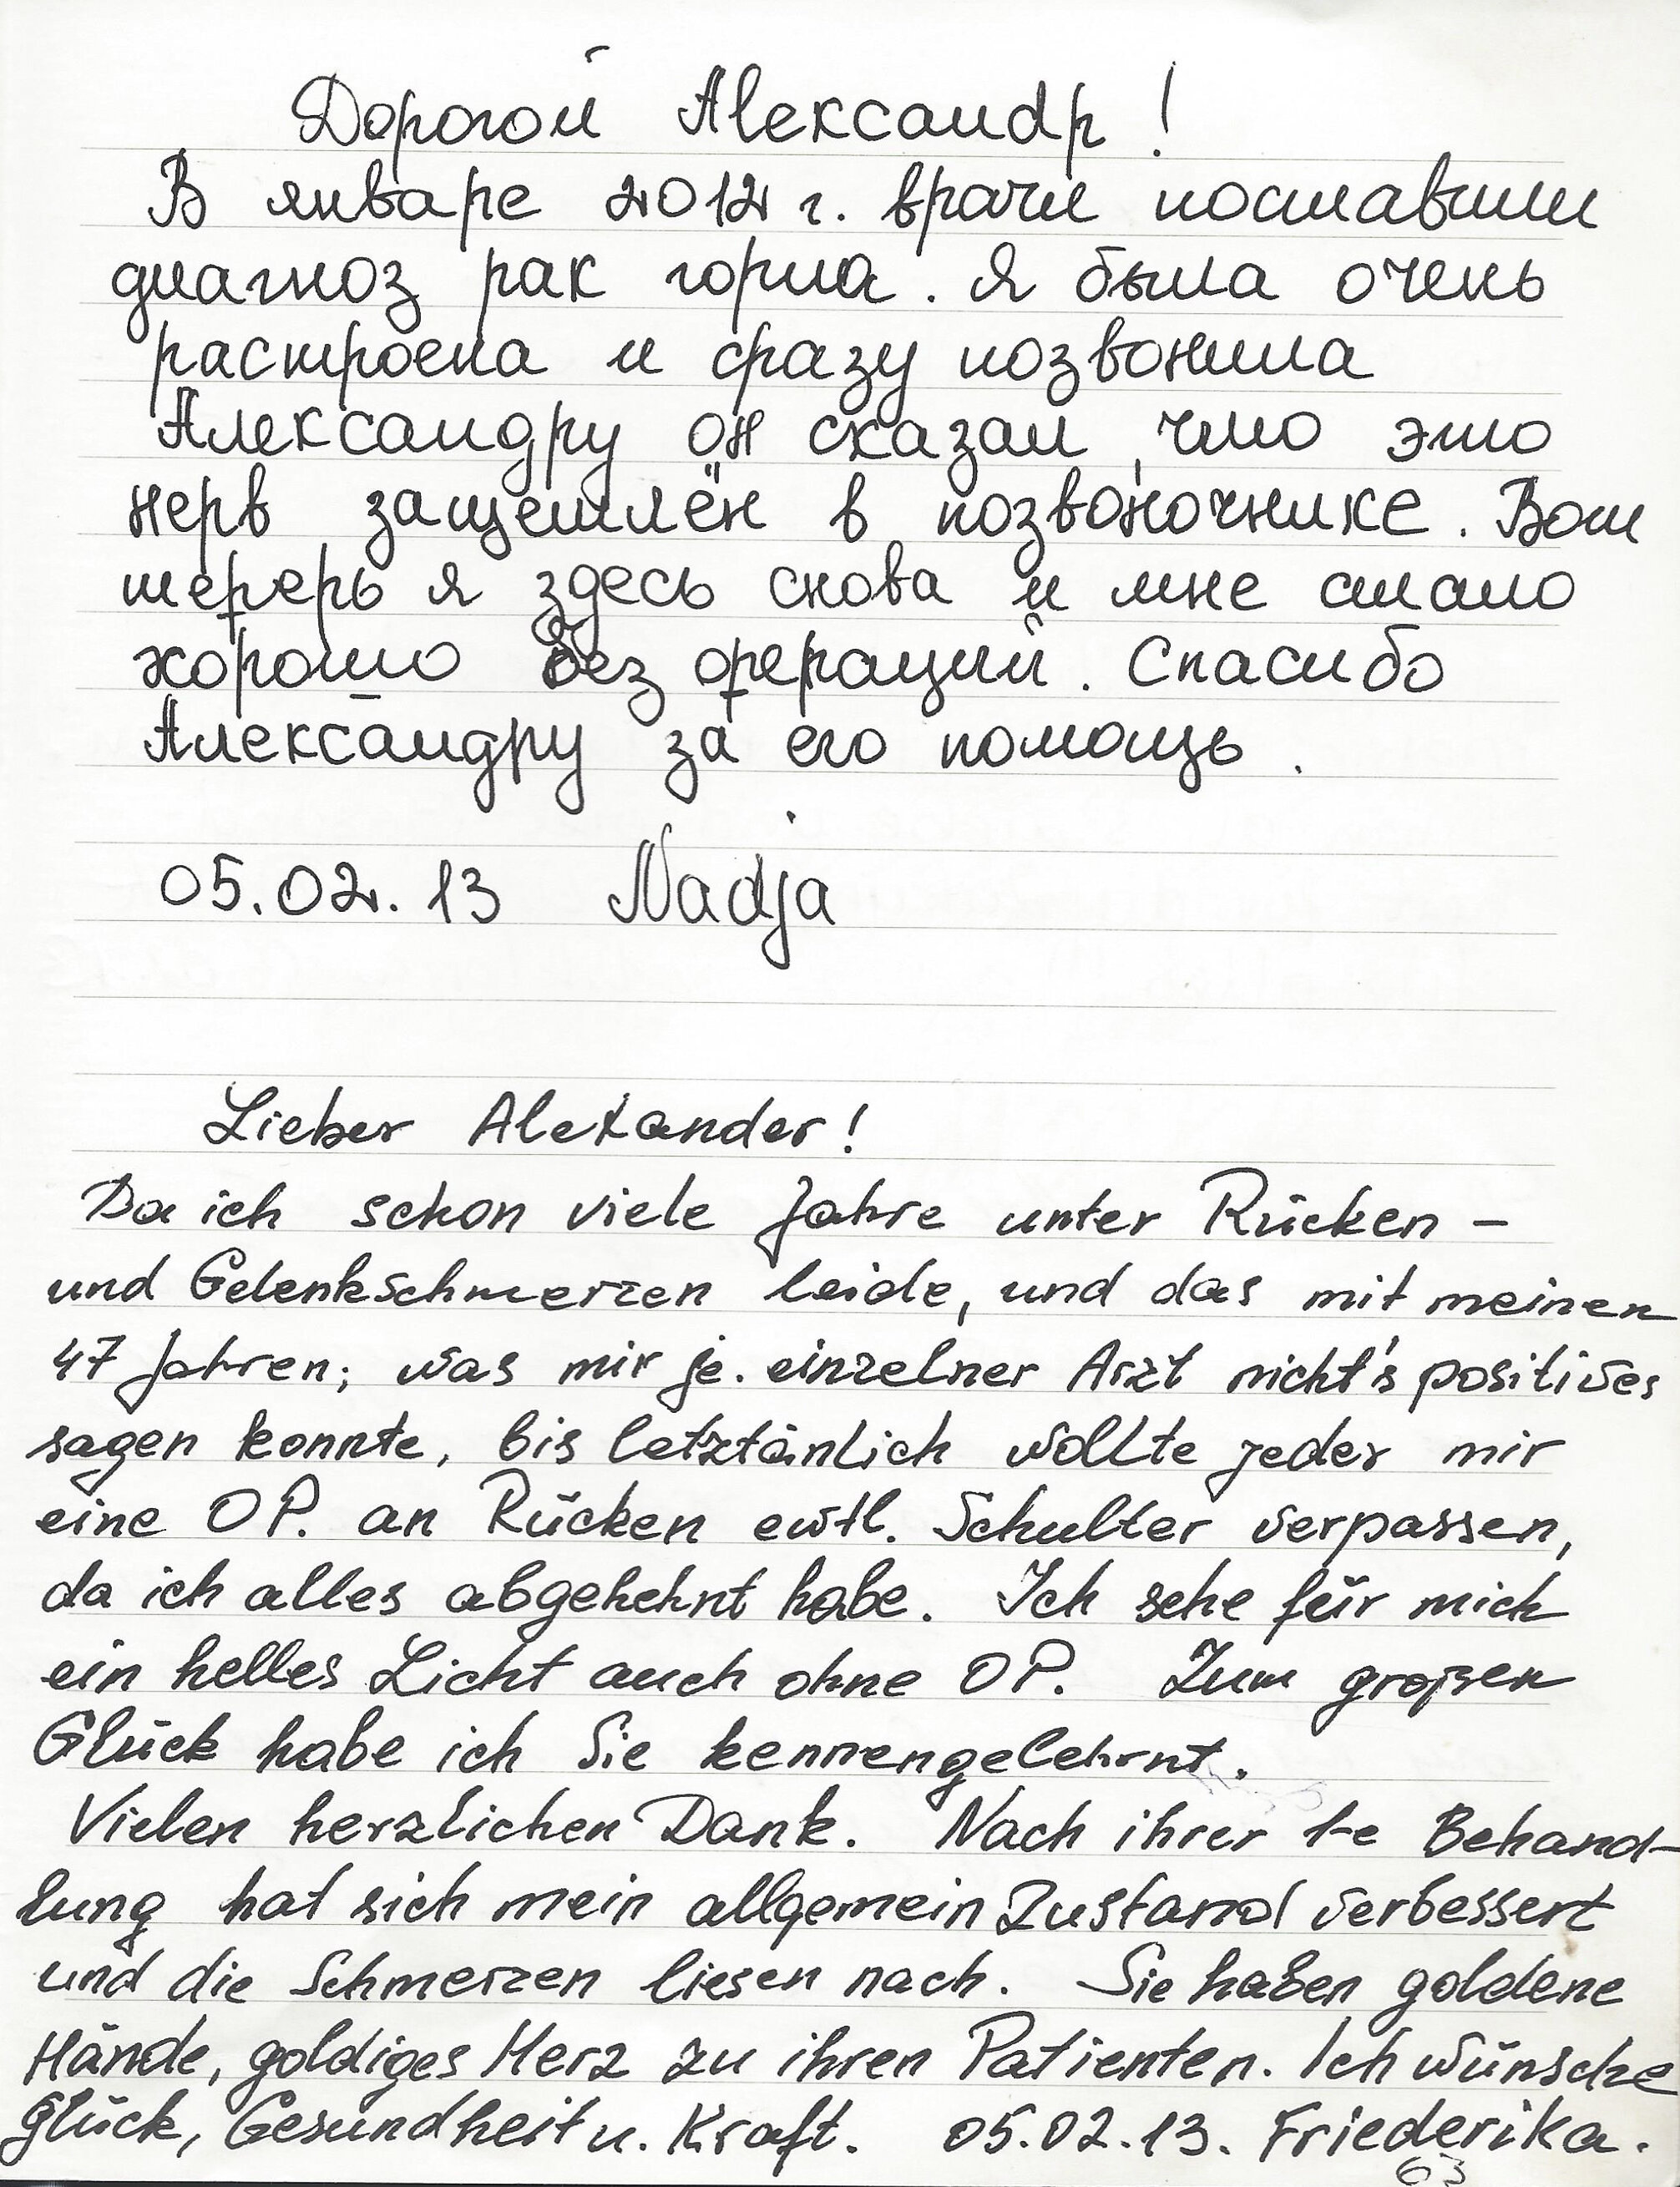 Дорогой Аlександр!
В январе 2012 г. врачи поставили
диагноз рак горла. Я была очень
растроена и сразу позвонила
Александру он сказал, что это
нерв защемлён в позвоночнике. Вот
теперь я здесь снова и мне стало
хорошо без операций. Спасибо
Александру за его помощь.
05.02.13 Nadja
Lieber Alexander!
Da ich schon viele Jahre unter Rücken -
und Gelenkschmerzen leide, und das mit meinen
47 Jahren; was mir je. einzelner Arzt nicht's positives
sagen konnte, bis letztänlich wollte jeder mir
eine OP. an Rücken ewtl. Schulter verpassen,
da ich alles abgehehnt habe. Ich sehe für mich
ein helles Licht auch ohne OP. Zum großen
Glück habe ich Sie kennengelehrnt.
Vielen herzlichen Dank. Nach ihrer 1-e Behand-
lung hat sich mein allgemein Zustand verbessert
und die Schmerzen liesen nach. Sie haben goldene
Hände, goldiges Herz zu ihren Patienten. Ich wünsche
Glück, Gesundheit u. Kraft. 05.02.13. Friederika.
63